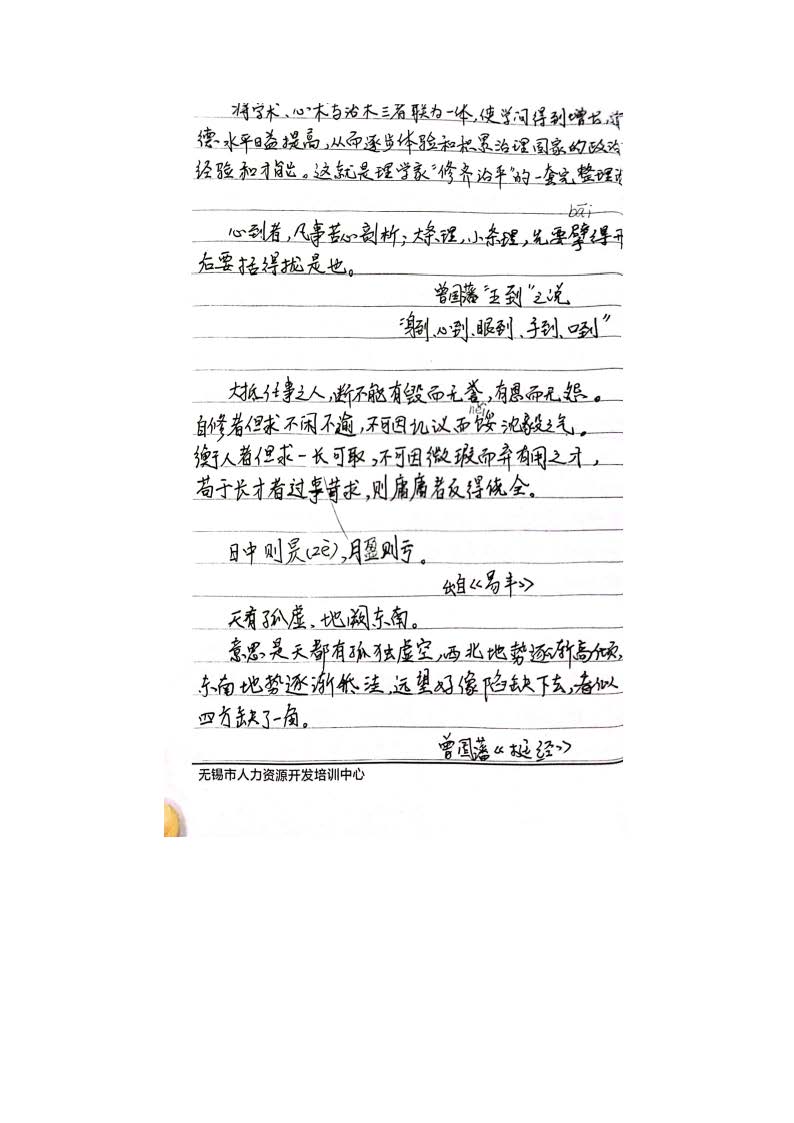 将学术、心术与治术三者联为一体,使学问得到增长,道
德水平日益提高,从而逐步体验和积累治理国家的政治
经验和才能。这就是理学家“修齐治平”的一套完整理
bāi
心到者,凡事苦心剖析;大条理,小条理,先要擘得开
后要括得拢是也。
曾国藩“五到”之说
“身到、心到、眼到、手到、口到”
大抵任事之人,断不能有毁而无誉,有恩而无怨。
něi
自修者但求不闲不逾,不可因讥议而馁沈毅之气。
衡人者但求一长可取,不可因微瑕而弃有用之才,
苟于长才者过事苛求,则庸庸者反得侥全。
日中则昃(zè),月盈则亏。
出自《易丰》
天有孤虚、地阙东南。
意思是天都有孤独虚空,西北地势逐渐高倾,
东南地势逐渐低洼,远望好像陷缺下去,看似
四方缺了一角。
曾国藩《挺经》
无锡市人力资源开发培训中心